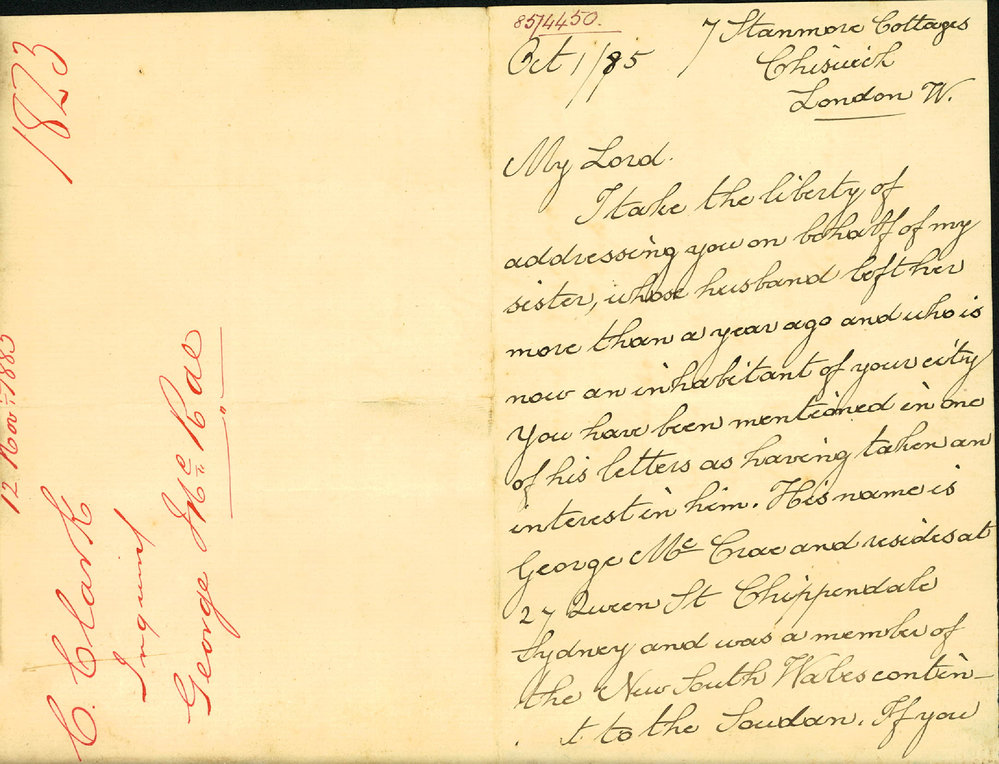 1823
12 Nov: 1885
C. Clark
Inquiry
George McRae
"
85/4450.
Oct 1/85
7 Stanmore Cottages
Chiswick
London W.
My Lord.
I take the liberty of
addressing you on behalf of my
sister, whose husband left her
more than a year ago and who is
now an inhabitant of your city
You have been mentioned in one
of his letters as having taken an
interest in him. His name is
George Mc Crae and resides at
27 Queen St Chippendale
Sydney and was a member of
the New South Wales contin-
t to the Soudan. If you